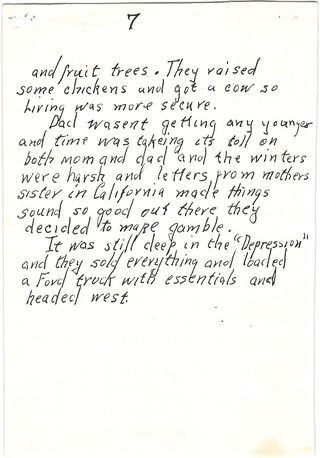 7
and fruit trees. They raised
some chickens and got a cow so
living was more secure.
Dad wasent getting any younger
and time was takeing its toll on
both mom and dad and the winters
were harsh and letters from mothers
sister in California made things
sound so good out there they
decided to make gamble.
It was still deep in the "Depression"
and they sold everything and loaded
a Ford truck with essentials and
headed west.